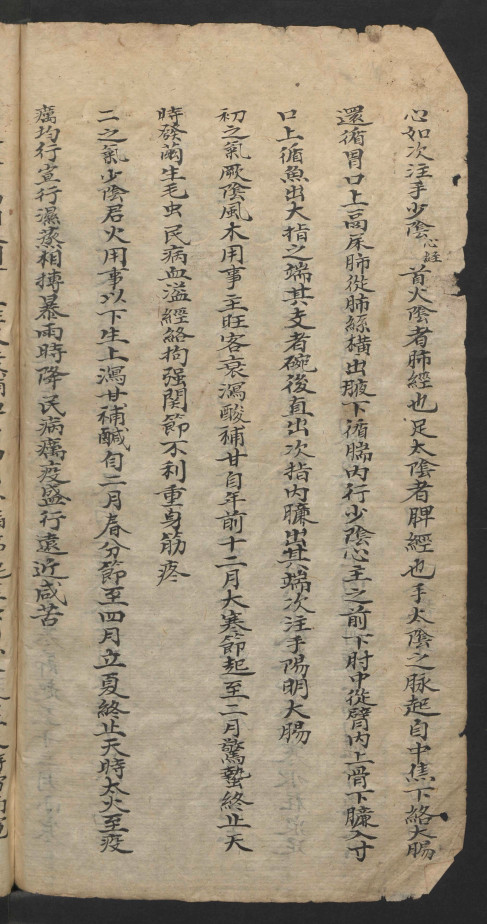 心如次注手少陰心經首火陰者肺經也足太陰者脾經也手太陰之脉起自中焦下絡大腸
還循胃口上鬲屎肺從肺絲橫出腋下循臑内行少陰心主之前下肘中從臂内上骨下臁入寸
口上循魚出大指之端其支者碗後直出次指内臁出其端次注手陽明大腸
初之氣厥陰風木用事主旺客衰瀉酸補甘自年前十二月大寒節起至二月驚蟄終止天
時發菌生毛虫民病血溢經絡拘强関節不利重身筋疼
二之氣少陰君火用事以下生上瀉甘補鹹自二月春分節至四月立夏終止天時太火至疫
癘均行宣行濕蒸相搏暴雨時降民病癘疫盛行遠近咸苦